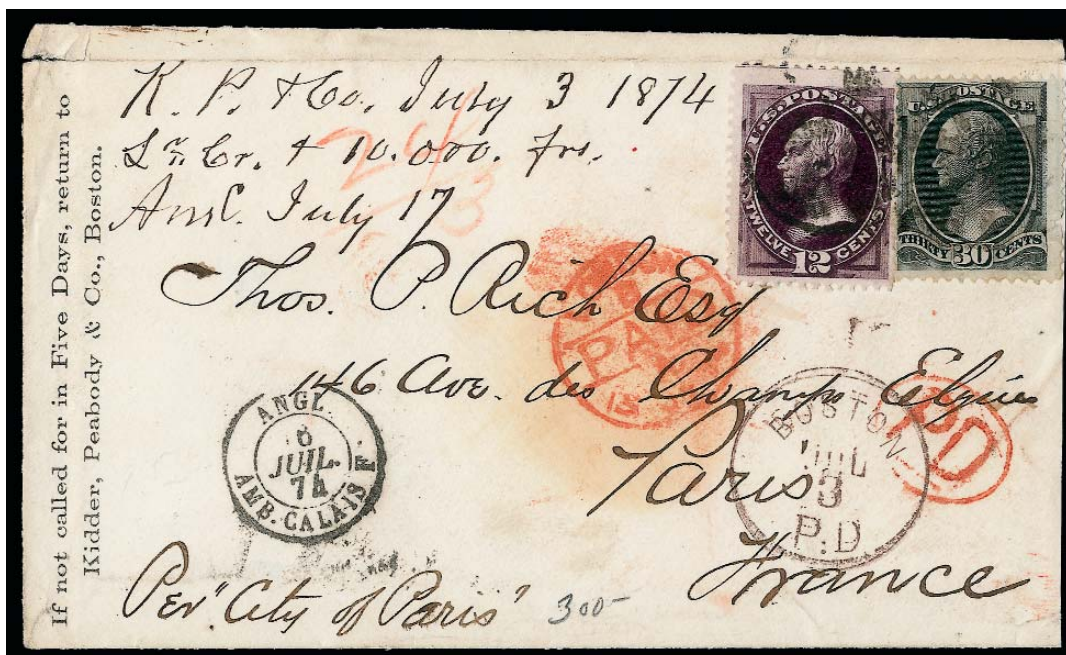 If not called for in Five Days, return to
Kidder, Peabody & Co., Boston.
K. P. & Co. July 3 1874
Cr. 10.000. frs.
July 17
24
3
U.S. POSTAGE
TWELVE 12 CENTS
U.S. POSTAGE
THIRTY 30 CENTS
Thos. P. Rich Esq
146 Ave. des Champs Elysées
Paris
France
PD
BOSTON
JUL
3
P.D
ANGL.
6
JUIL.
74
AMB. CALAIS F.
Per "City of Paris"
300-